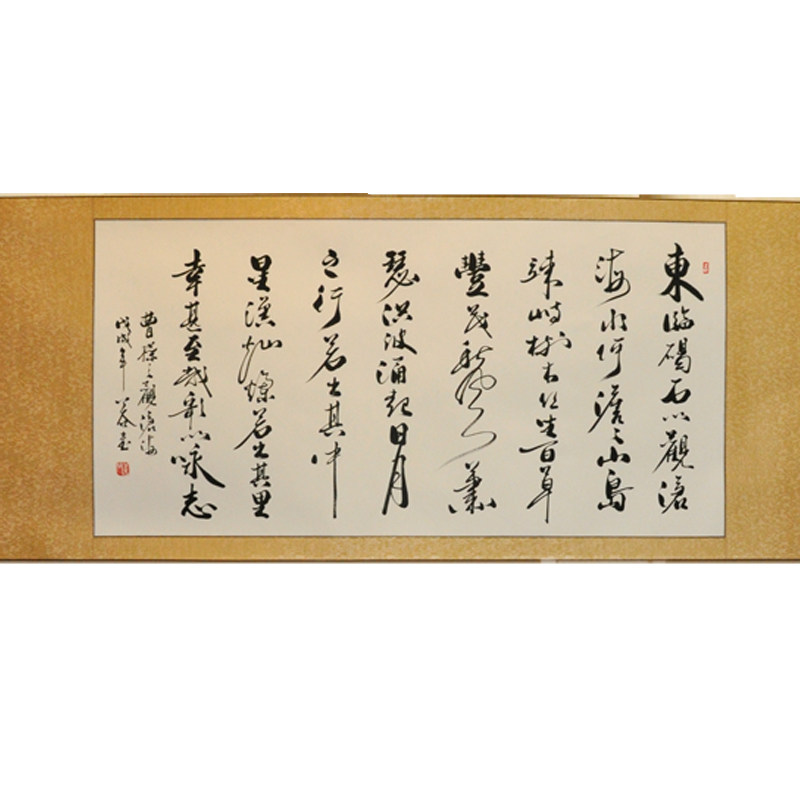 東臨碣石以觀滄
海水何澹々山島
竦峙樹木丛生百草
豐茂秋風蕭
瑟洪波涌起日月
之行若出其中
星漢灿爛若出其里
幸甚至哉歌以咏志
曹操之觀滄海
戊戌年